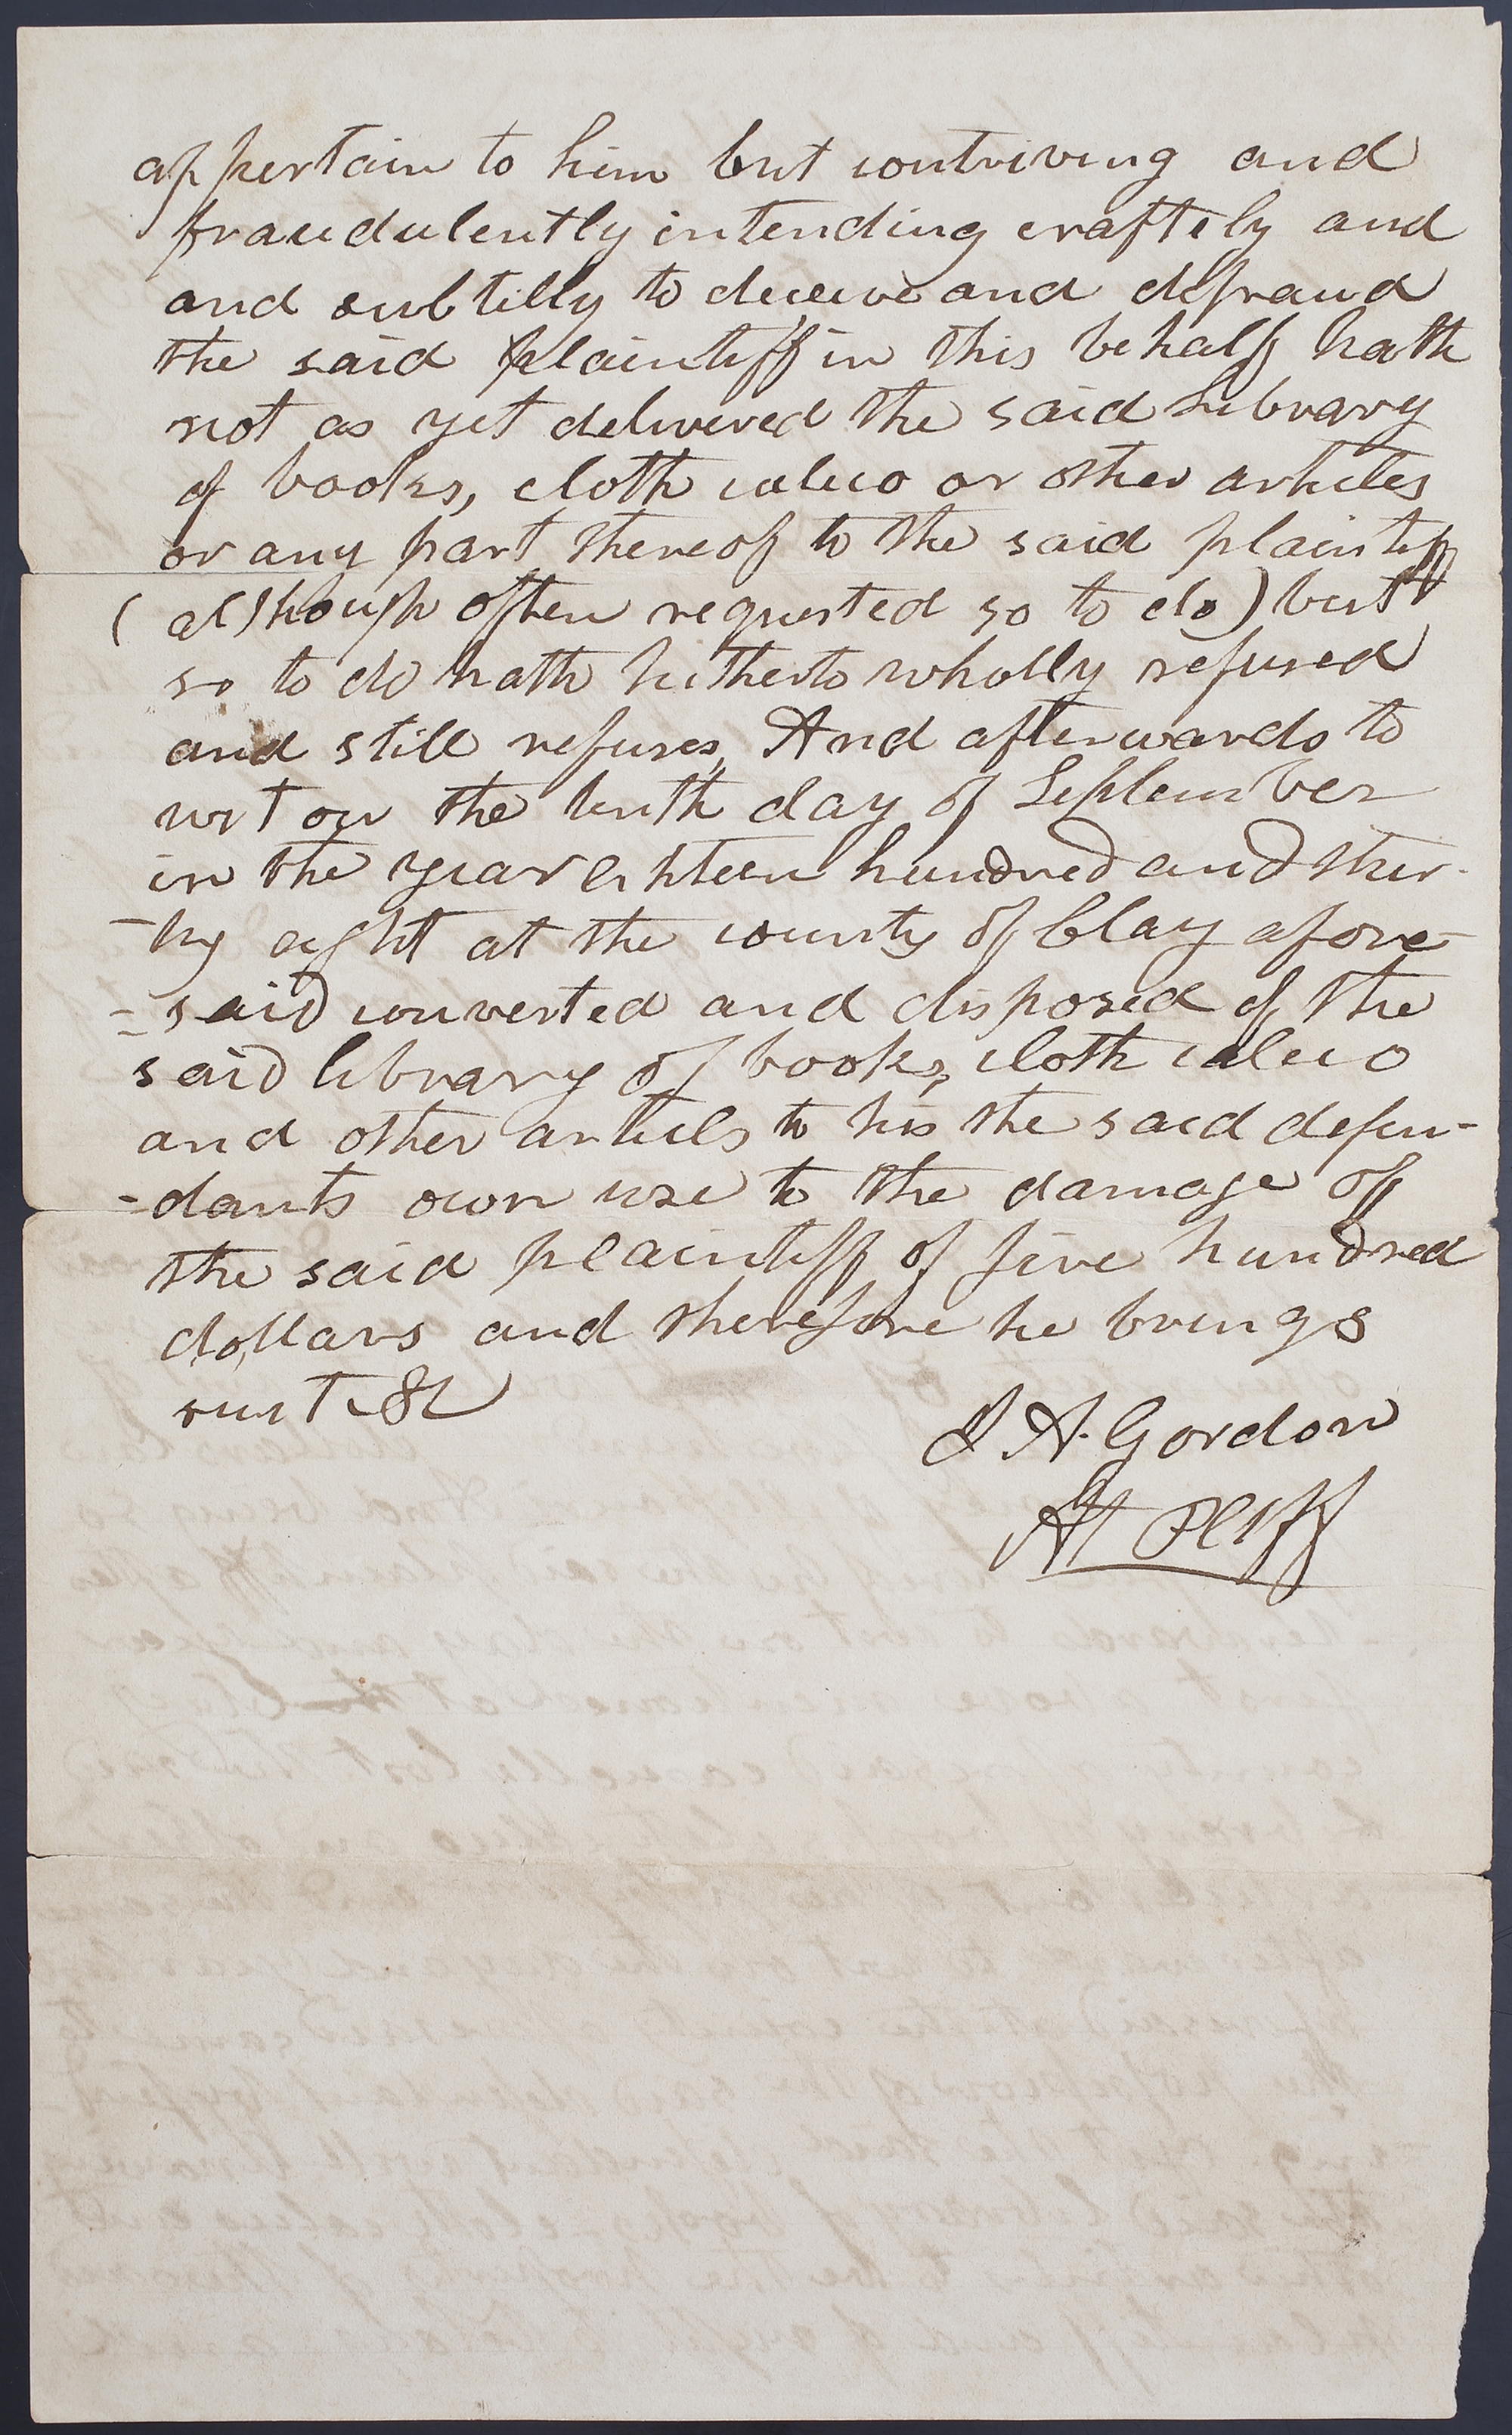 appertain to him but contriving and
fraudulently intending craftely and
and subtilly to deceive and defraud
the said plaintiff in this behalf hath
not as yet delivered the said Library
of books, cloth calico or other articles
or any part thereof to the said plaintiff
(although often requested so to do) but
so to do hath hitherto wholly refused
and still refuses, And afterwards to
wit on the tenth day of September
in the year eihteen hundred and thir-
-ty eight at the county of Clay afore-
-said converted and disposed of the
said library of books, cloth calico
and other articels to his the said defen-
-dants own use to the damage of
the said plaintiff of five hundred
dollars and therefore he brings
suit &c
A. Gordon
Att Plff